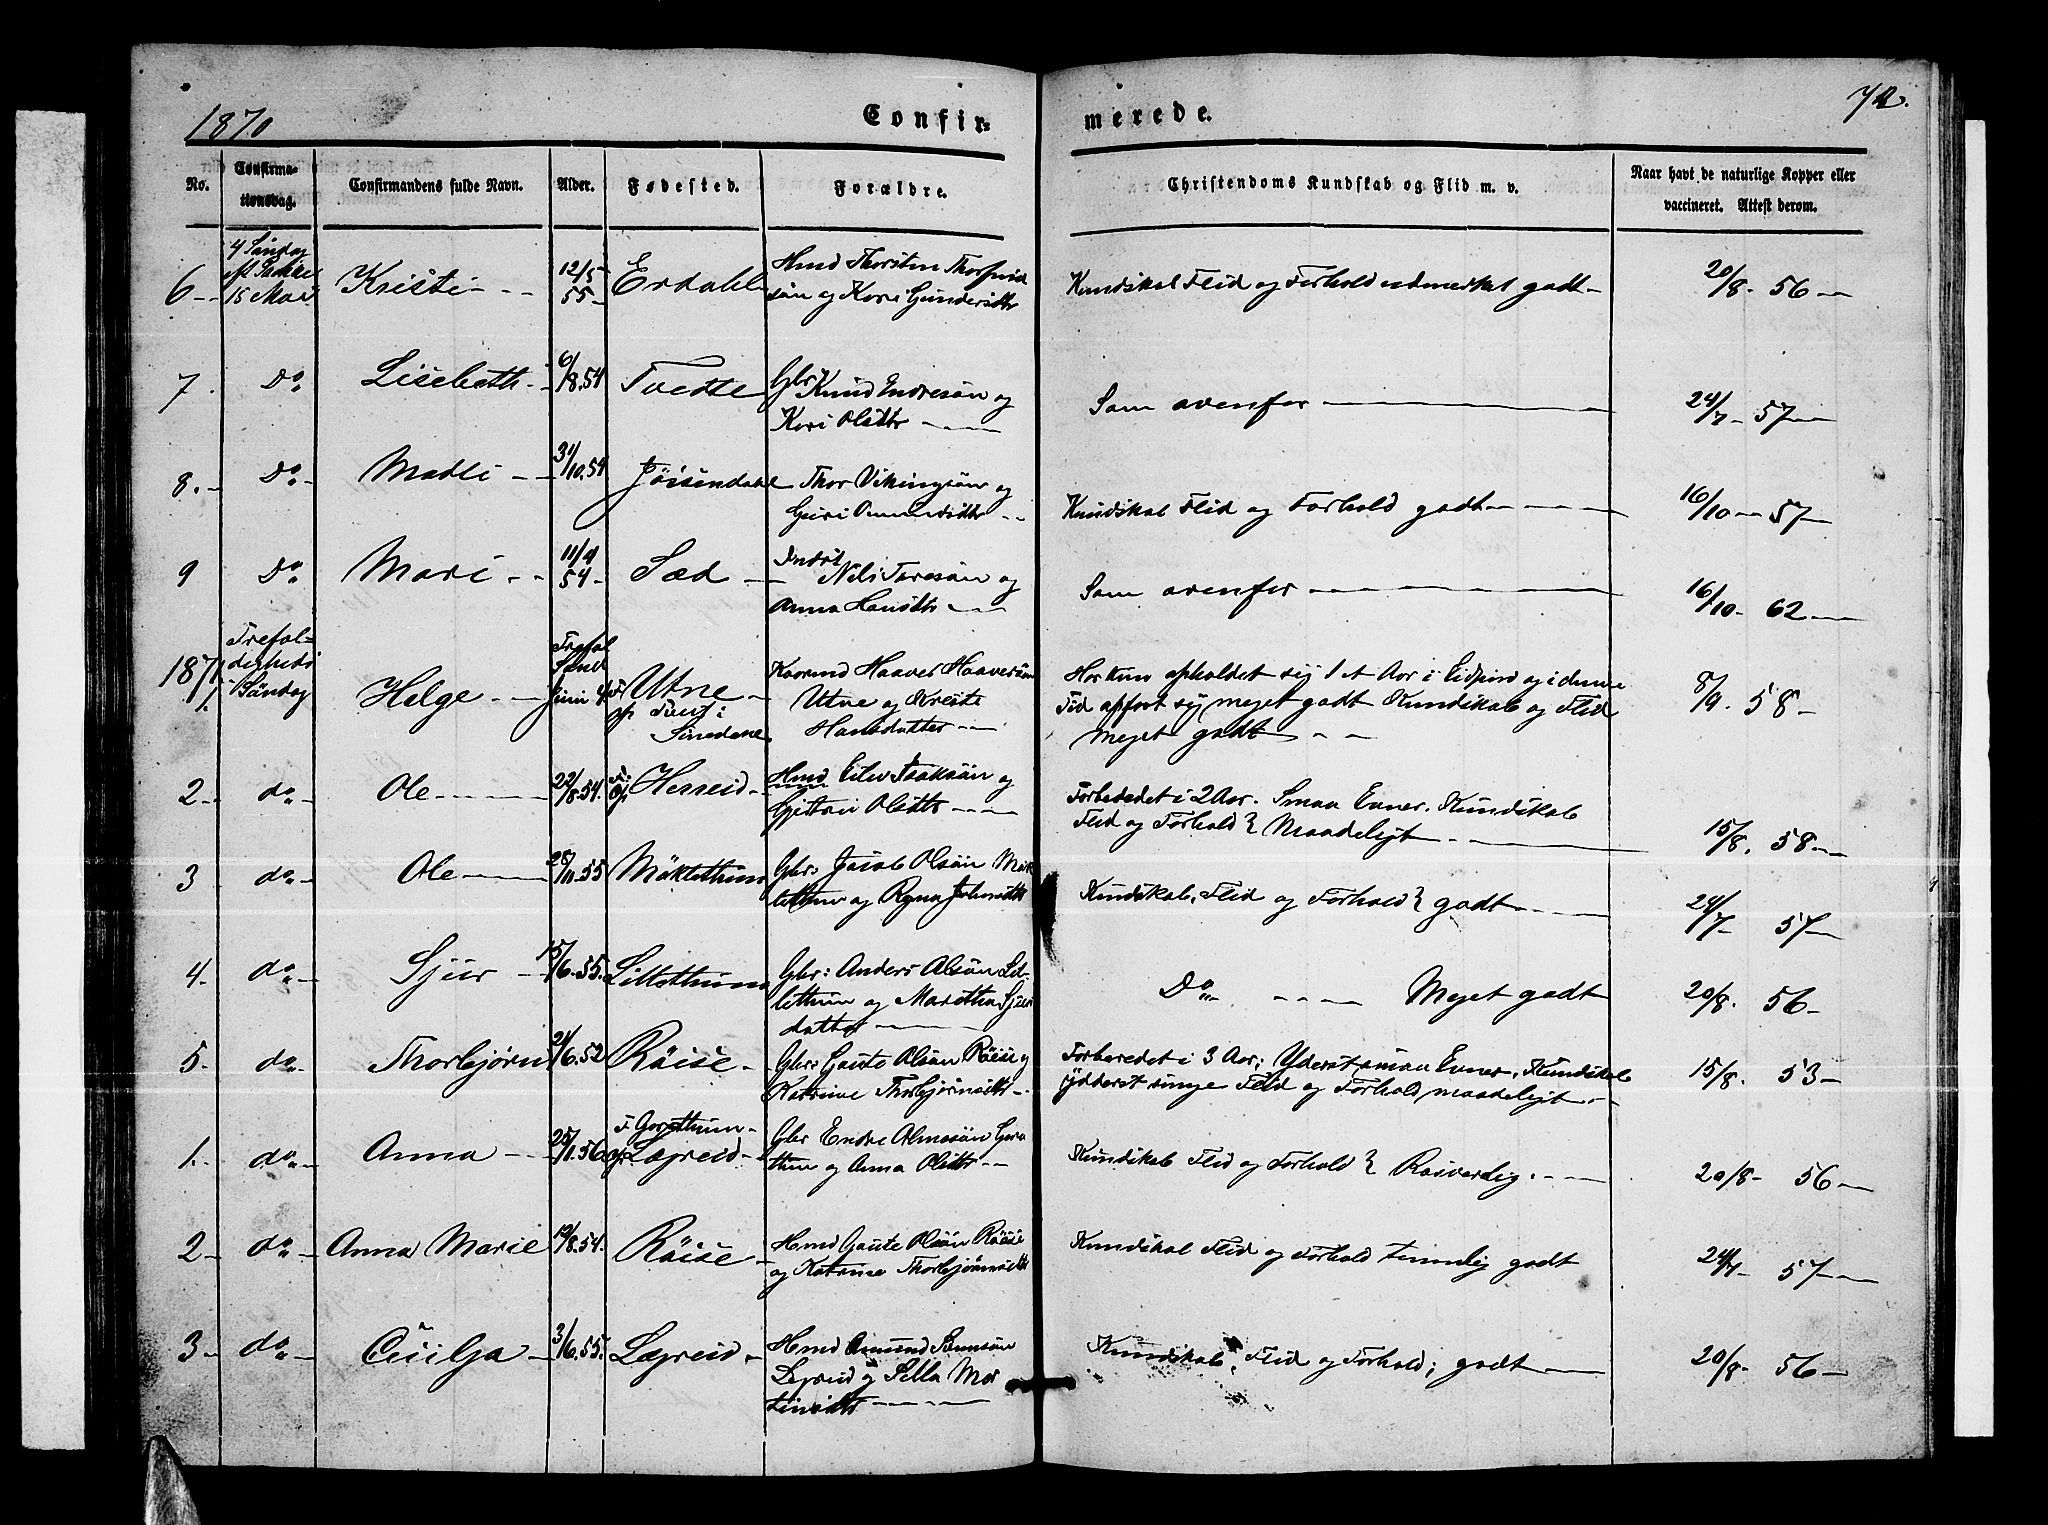 1870
Confir-
merede.
72.
No.
Confirma-
tionsdag.
Confirmandens fulde Navn.
Alder.
Fødested.
Forældre.
Christendoms Kundskab og Flid m. v.
Naar havt de naturlige Kopper eller
vaccineret. Attest derom.
6 -
4 Søndag
15 Mai
Kristi - - -
12/5
55 -
Erdahl
Hmd Thorsten
søn og Kari Gundersdtr
Kundskab Flid og Forhold udmerket godt -
20/8 - 56 -
7.
Do
Lisebeth -
6/8.54
Tvedte
Gbr Knud Endresøn og
Kari Olsdtr -
Som ovenfor -
24/7 - 57 -
8. -
Do -
Madli - -
31/10.54
Jøisendahl
Thor Vikingsøn og
Guri Amundsdtr - -
Kundskab Flid og Forhold godt - - -
16/10 - 57 -
9
Do
Mari - -
11/4
54 -
Sæd -
Inderst
Nils Toresøn og
Anna Hansdtr -
Som ovenfor -
16/10 - 62 -
Trefol-
1871
dighedss
Søndag
1.
Helge -
Juni 4
Utne -
Haaver Haaversøn
Utne og
Hansdatter -
Har kun opholdet sig 1 et Aar i Eidfjord og i denne
Tid opført sig meget godt Kundskab og Flid
meget godt - -
8/9. 58 -
2 -
do -
Ole -
22/8.54.
Herreid -
Hmd Eilev Isaksøn og
Olsdtr -
Forberedet i 2 Aar. Smaa Evner. Kundskab
Flid og Forhold } Maadeligt -
15/8. 58 -
3
do -
Ole -
25/11.55
Møkletthun
Gbr: Jacob Olsøn Møk
letthun og Ragna Johnsdtr
Kundskab, Flid og Forhold } godt -
24/7 - 57 -
4.
do -
Sjur -
15/6.55.
Lilletthun
Gbr: Anders Olsøn Lil-
letthun og Maretha Sjur
datter -
Do - - - Meget godt
20/8. 56 -
5.
do -
Thorbjørn
21/6.52
Røise -
Gbr: Gaute Olsøn Røise og
Katrine Thorbjørnsdtr -
Forberedet i 3 Aar; Yderst smaa Evner, Kundskab
ydderst ringe Flid og Forhold maadeligt. -
15/8. 53 -
1. -
do -
Anna - -
25/1.56
Garatthun -
Lægreid -
Gbr Endre Olsøn Gara
thun og Anna Olsdtr -
Kundskab Flid og Forhold } Rosværdig. -
20/8 - 56 -
2 -
do -
Anna Marie
19/8.54.
Røise -
Hmd Gaute Olsøn Røise
og Katrine Thorbjørnsdtr
Kundskab Flid og Forhold temmelig godt
24/7 - 57 -
3 -
do -
Cicilja -
3/6.55.
Lægreid -
Hmd Amund
Legreid og Sella Mor
tensdtr -
Kundskab, Flid og Forhold; godt -
20/8 - 56 -